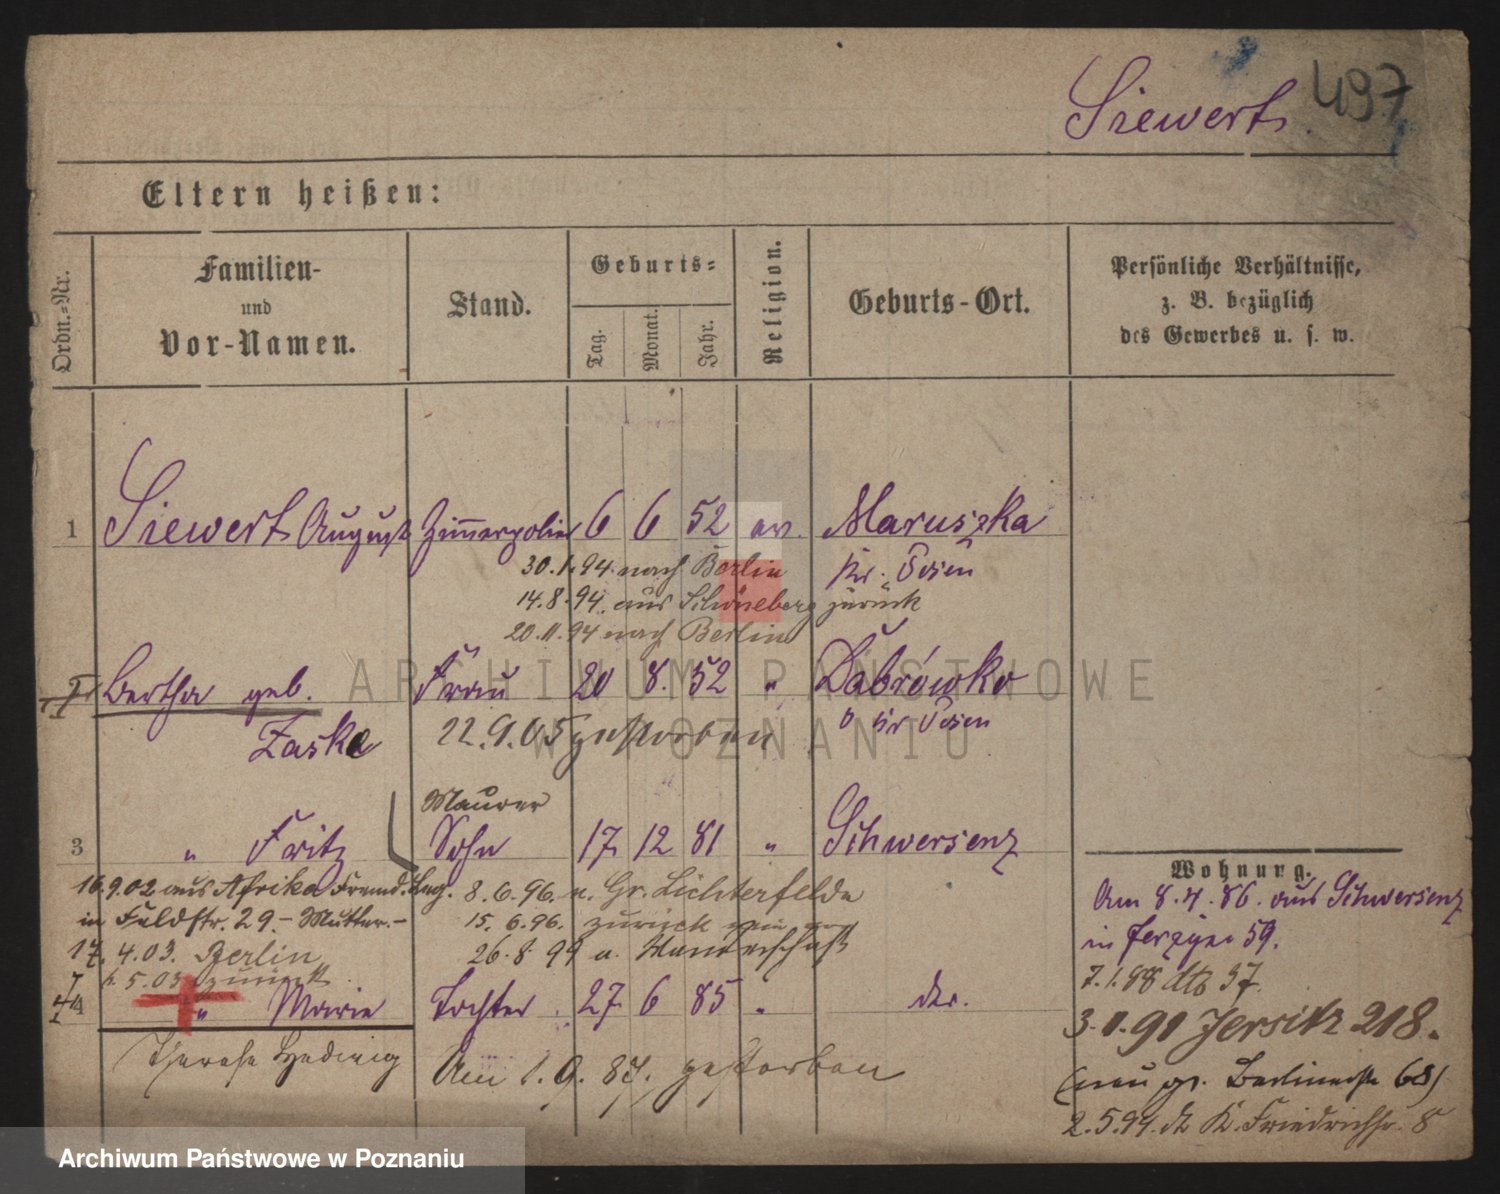 Siewert 497
Eltern heißen:
Ordn.-Nr.
Familien-
und
Vor-Namen.
Stand.
Geburts-
Tag.
Monat.
Jahr.
Religion.
Geburts-Ort.
Persönliche Verhältnisse,
z. B. bezüglich
des Gewerbes u. s. w.
1 Siewert August Zimmerpolier 6 6 52 ev. Maruszka
Kr. Posen
30.1.94 nach Berlin
14.8.94. aus Schöneberg zurück
20.11.94 nach Berlin
Bertha geb. Frau 20 8. 52 " Dabrówko
Kr Posen
Zaske
22.9.05 gestorben
Maurer
3 " Fritz Sohn 17 12 81 " Schwersenz
16.9.02 aus Afrika Fremd. Leg. 8.6.96. n. Gr. Lichterfelde
in Feldstr. 29.- Mutter.-
15.6.96. zurück
17.4.03. Berlin
26.8 99 a. Wanderschaft
5.03 zurück
4 " Marie Tochter 27 6 85 " do.
Therese Hedwig
Am 1.9.87. gestorben
Wohnung.
Am 8.4.86. aus Schwersenz
in Jerzyce 59.
7.1.88 dto 37.
3.1.91 Jersitz 218.
(neu gr. Berlinerstr 68)
2.5.94. do K. Friedrichstr. 8
ARCHIWUM PAŃSTWOWE
W POZNANIU
Archiwum Państwowe w Poznaniu